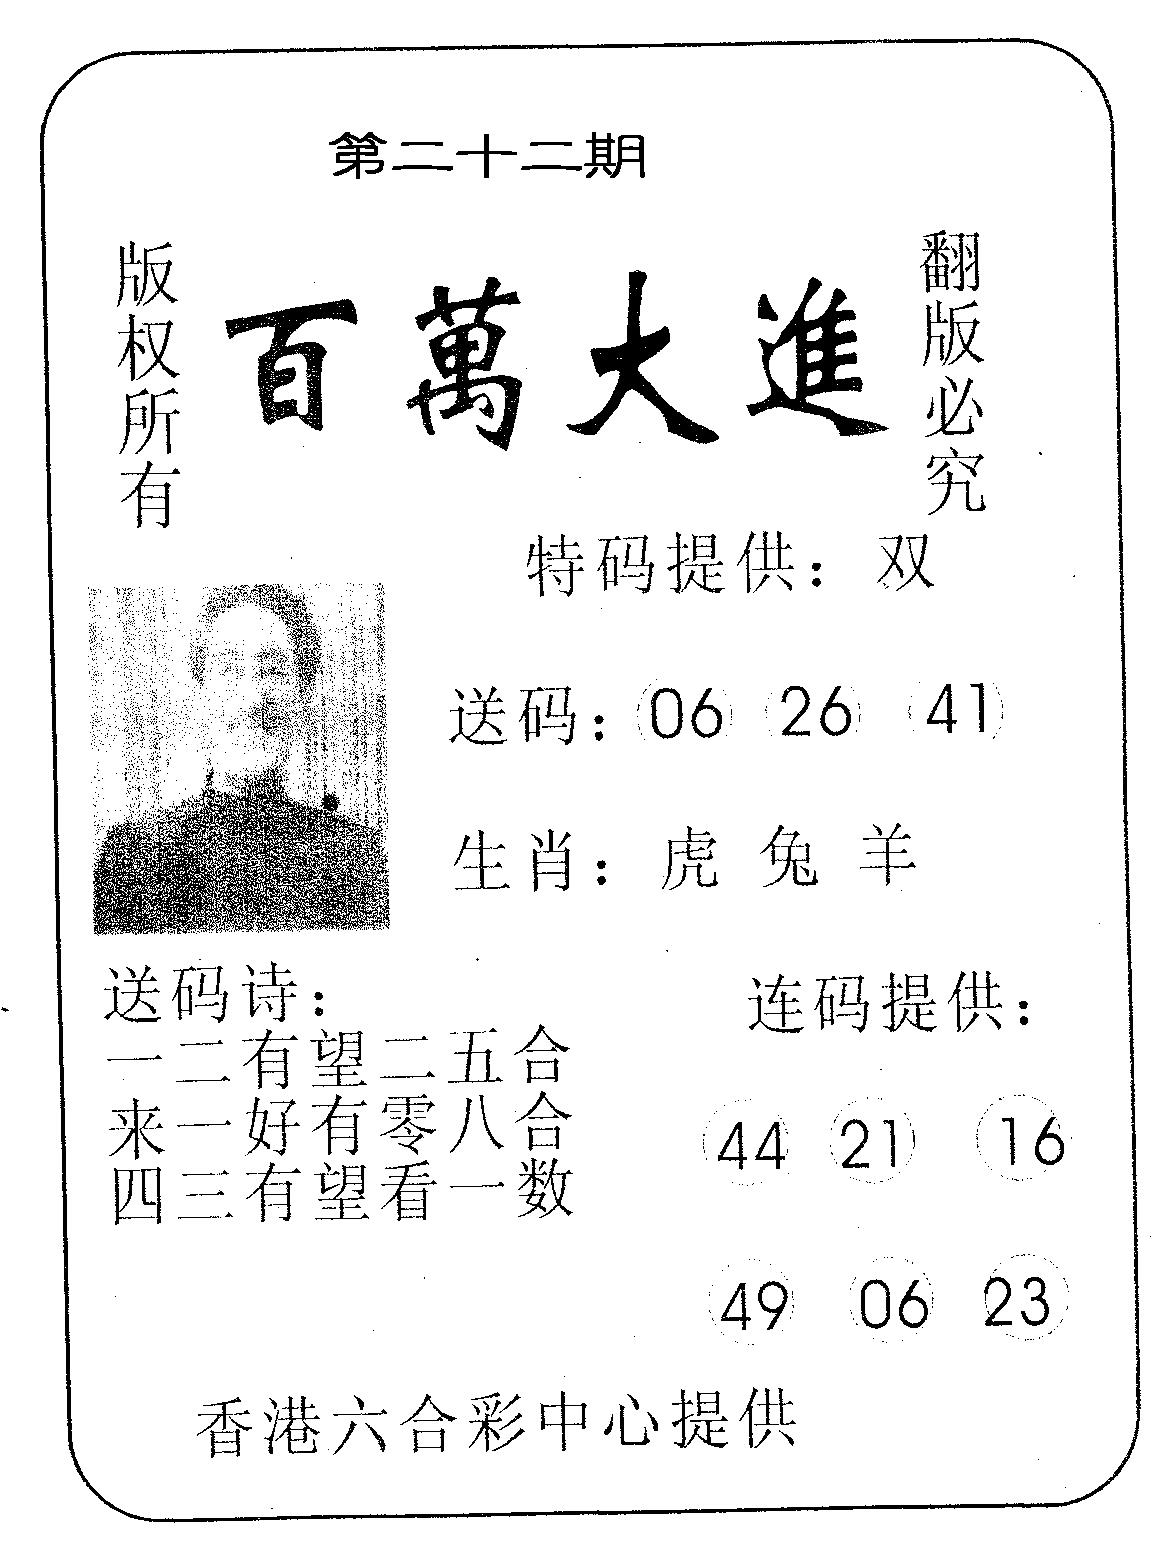 第二十二期
版权所有
百萬大進
翻版必究
特码提供：双
送码：06 26 41
生肖：虎 兔 羊
送码诗：
一二有望二五合
来一好有零八合
四三有望看一数
连码提供：
44 21 16
49 06 23
香港六合彩中心提供